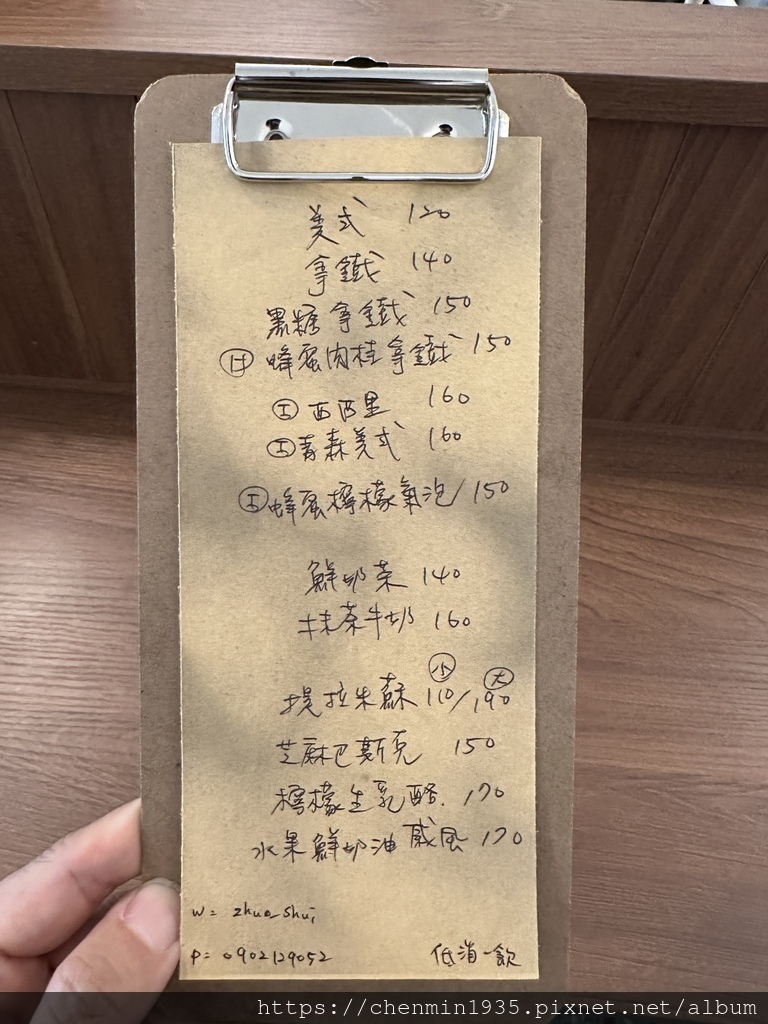 美式 120
拿鐵 140
黑糖拿鐵 150
Ⓗ 蜂蜜肉桂拿鐵 150
Ⓘ 西西里 160
Ⓘ 青森美式 160
Ⓘ 蜂蜜檸檬氣泡 150
鮮奶茶 140
抹茶牛奶 160
小 大
提拉朱蘇 110/190
芝麻巴斯克 150
檸檬生乳酪 170
水果鮮奶油戚風 170
w= zhuo_shui
p= 0902129052 低消一飲
https://chenmin1935.pixnet.net/album